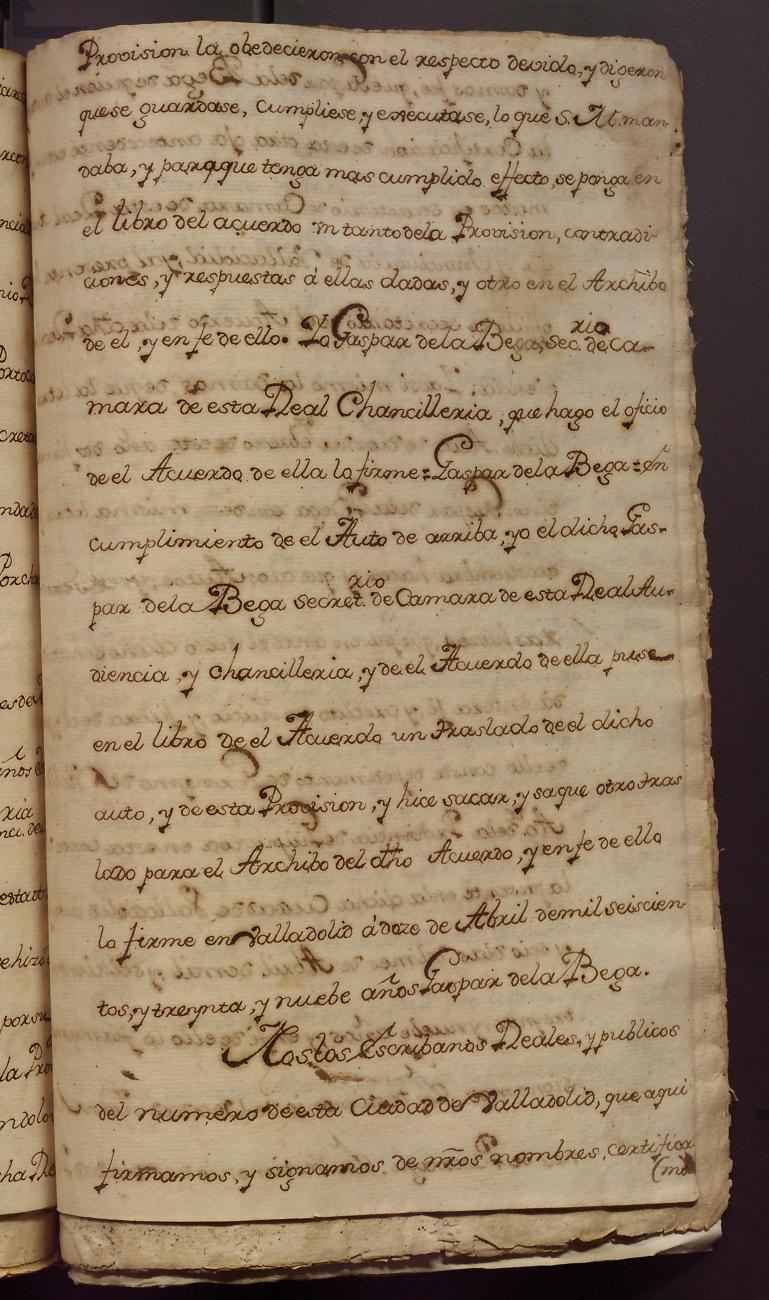 Provision la obedecieron con el respecto devido, y digeron
que se guardase, cumpliese, y executase, lo que S. M. man
daba, y para que tenga mas cumplido effecto, se ponga en
el libro del acuerdo un tanto dela Provision, contradi-
ciones, y respuestas á ellas dadas, y otro en el Archibo
de el, y en fe de ello. Yo Gaspar de la Bega, Sec.rio de Ca-
mara de esta Real Chancilleria, que hago el oficio
de el Acuerdo de ella lo firme = Gaspar dela Bega = en
cumplimiento de el Auto de arriba, yo el dicho Gas-
par dela Bega secret.rio de Camara de esta Real Au-
diencia, y chancilleria, y de el Acuerdo de ella puse
en el libro de el Acuerdo un traslado de el dicho
auto, y de esta Provision, y hice sacar, y saque otro tras
lado para el Archibo del dho Acuerdo, y en fe de ello
lo firme en Valladolid á doze de Abril de mil seiscien
tos, y treynta, y nuebe años Gaspar dela Bega.
Nos los Escribanos Reales, y publicos
del numero de esta Ciudad de Valladolid, que aqui
firmamos, y signamos de nros nombres, certifica
(mos